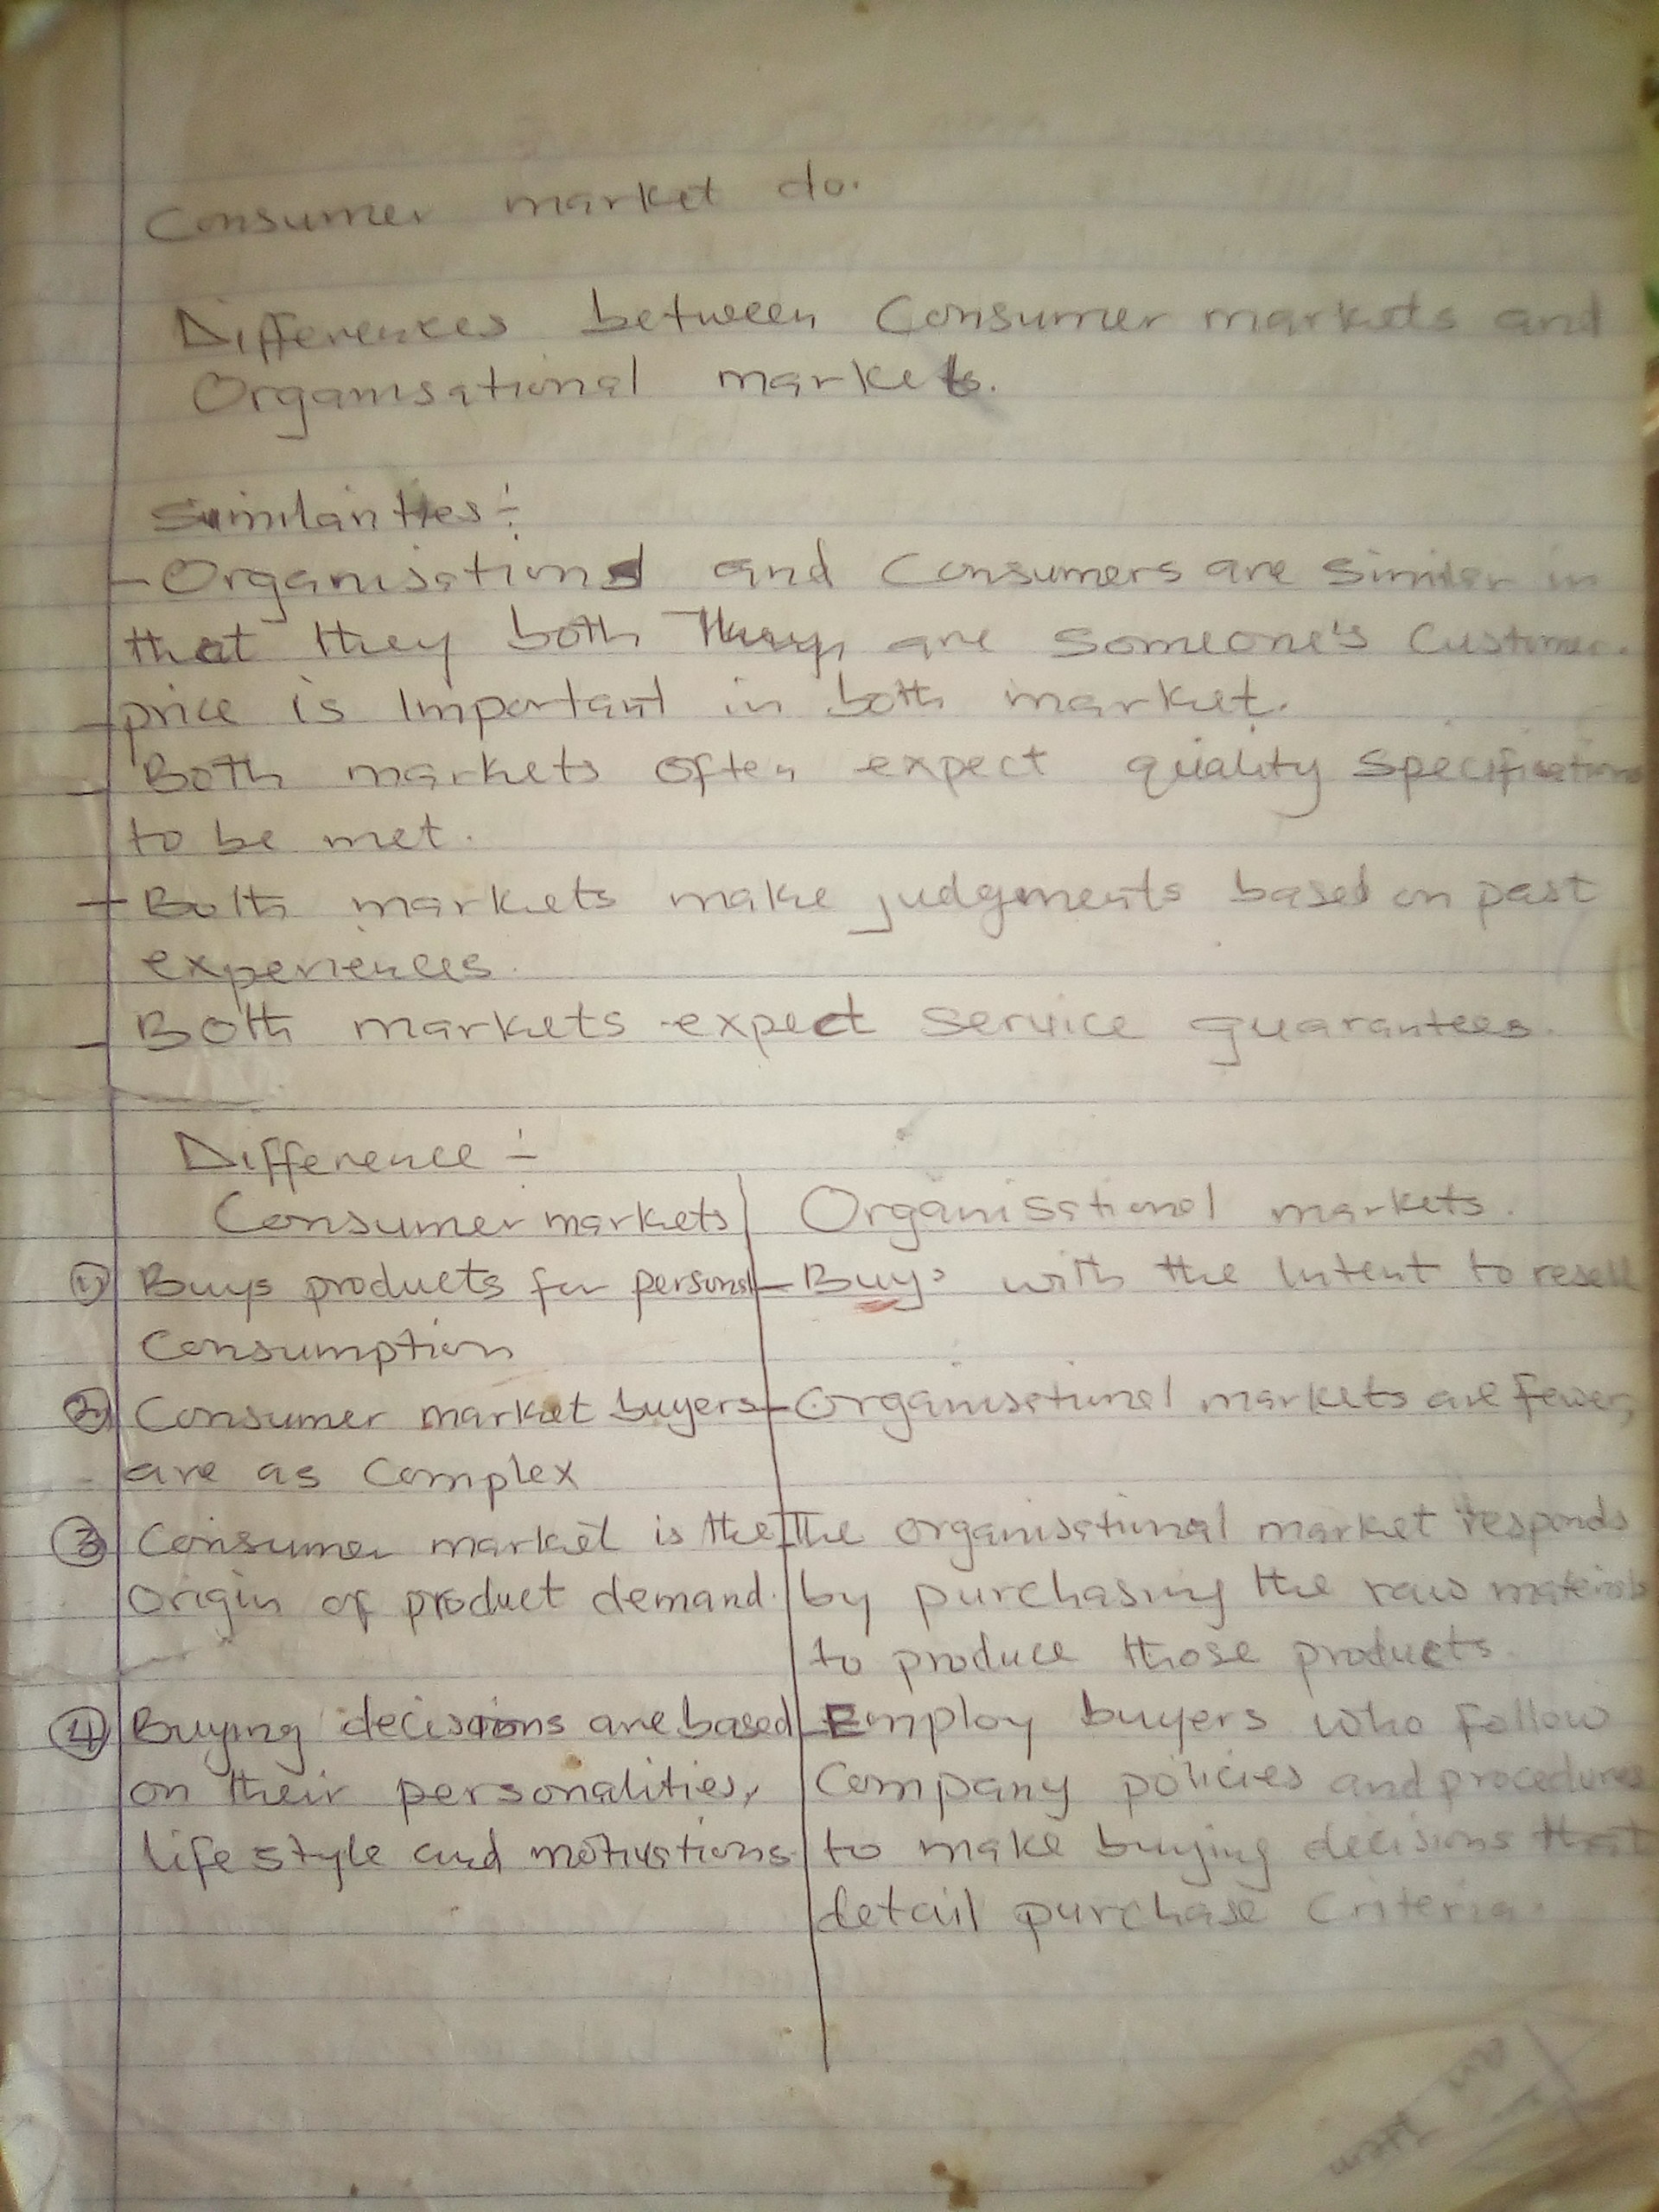 Consumer market do.
Differences between Consumer markets and
Organisational markets.
Similarities:-
- Organisations and Consumers are similar in
that they both are someone's Customer.
- price is Important in both market.
- Both markets often expect quality Specifications
to be met.
- Both markets make judgments based on past
experiences.
- Both markets expect service guarantees.
Difference :-
Consumer markets | Organisational markets.
① Buys products for personal - Buys with the Intent to resell
Consumption
② Consumer market buyers - Organisational markets are fewer,
are as Complex
③ Consumer market is the - The organisational market responds
Origin of product demand. by purchasing the raw materials
to produce those products.
④ Buying decisions are based - Employ buyers who follow
on their personalities, Company policies and procedures
life style and motivations. to make buying decisions that
detail purchase Criteria.